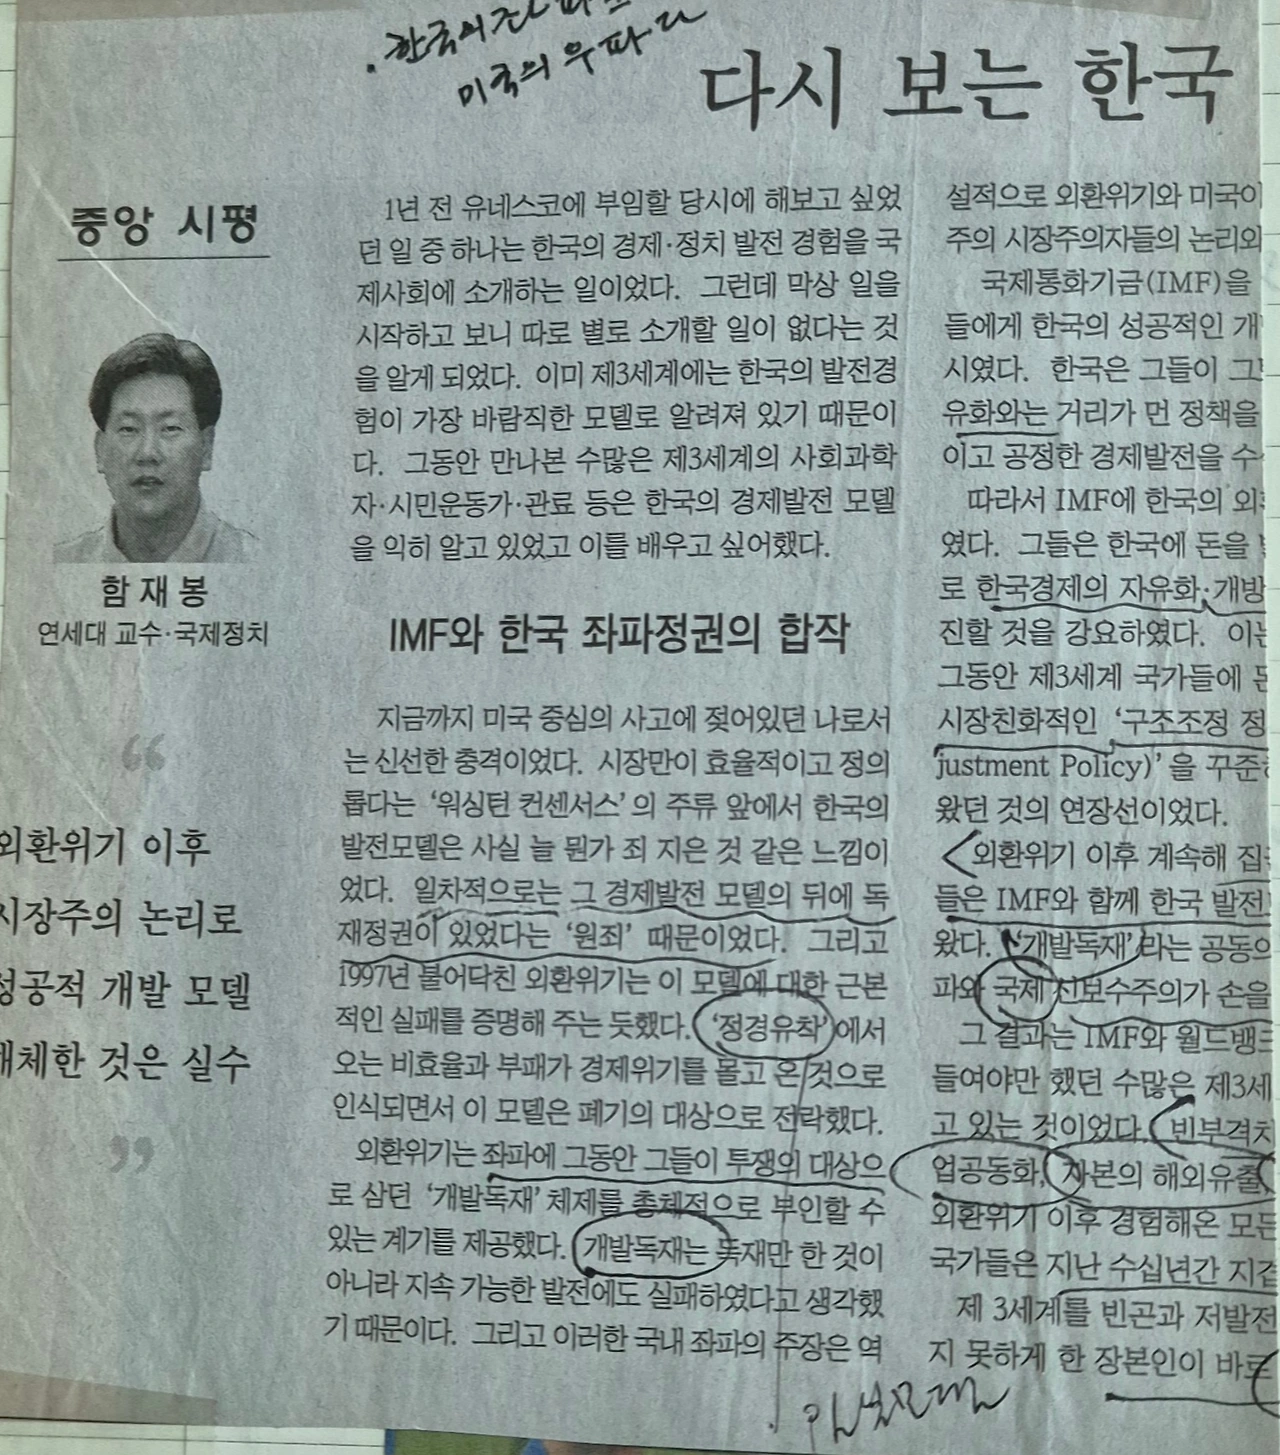 한국의 좌파
미국의 우파
다시 보는 한국
중앙 시평
함 재 봉
연세대 교수·국제정치
“
외환위기 이후
시장주의 논리로
성공적 개발 모델
대체한 것은 실수
”
1년 전 유네스코에 부임할 당시에 해보고 싶었
던 일 중 하나는 한국의 경제·정치 발전 경험을 국
제사회에 소개하는 일이었다. 그런데 막상 일을
시작하고 보니 따로 별로 소개할 일이 없다는 것
을 알게 되었다. 이미 제3세계에는 한국의 발전경
험이 가장 바람직한 모델로 알려져 있기 때문이
다. 그동안 만나본 수많은 제3세계의 사회과학
자·시민운동가·관료 등은 한국의 경제발전 모델
을 익히 알고 있었고 이를 배우고 싶어했다.
IMF와 한국 좌파정권의 합작
지금까지 미국 중심의 사고에 젖어있던 나로서
는 신선한 충격이었다. 시장만이 효율적이고 정의
롭다는 ‘워싱턴 컨센서스’의 주류 앞에서 한국의
발전모델은 사실 늘 뭔가 죄 지은 것 같은 느낌이
었다. 일차적으로는 그 경제발전 모델의 뒤에 독
재정권이 있었다는 ‘원죄’ 때문이었다. 그리고
1997년 불어닥친 외환위기는 이 모델에 대한 근본
적인 실패를 증명해 주는 듯했다. ‘정경유착’에서
오는 비효율과 부패가 경제위기를 몰고 온 것으로
인식되면서 이 모델은 폐기의 대상으로 전락했다.
외환위기는 좌파에 그동안 그들이 투쟁의 대상으
로 삼던 ‘개발독재’ 체제를 총체적으로 부인할 수
있는 계기를 제공했다. 개발독재는 독재만 한 것이
아니라 지속 가능한 발전에도 실패하였다고 생각했
기 때문이다. 그리고 이러한 국내 좌파의 주장은 역
설적으로 외환위기와 미국이
주의 시장주의자들의 논리와
국제통화기금(IMF)을
들에게 한국의 성공적인 개
시였다. 한국은 그들이
유화와는 거리가 먼 정책을
이고 공정한 경제발전을 수
따라서 IMF에 한국의 외
였다. 그들은 한국에 돈을
로 한국경제의 자유화·개방
진할 것을 강요하였다. 이는
그동안 제3세계 국가들에
시장친화적인 ‘구조조정 정
justment Policy)’을 꾸준
왔던 것의 연장선이었다.
외환위기 이후 계속해 집
들은 IMF와 함께 한국 발전
왔다. ‘개발독재’라는 공동의
파와 국제 신보수주의가 손을
그 결과는 IMF와 월드뱅크
들여야만 했던 수많은 제3세
고 있는 것이었다. 빈부격차
업공동화, 자본의 해외유출
외환위기 이후 경험해온 모든
국가들은 지난 수십년간 지겹
제 3세계를 빈곤과 저발전
지 못하게 한 장본인이 바로